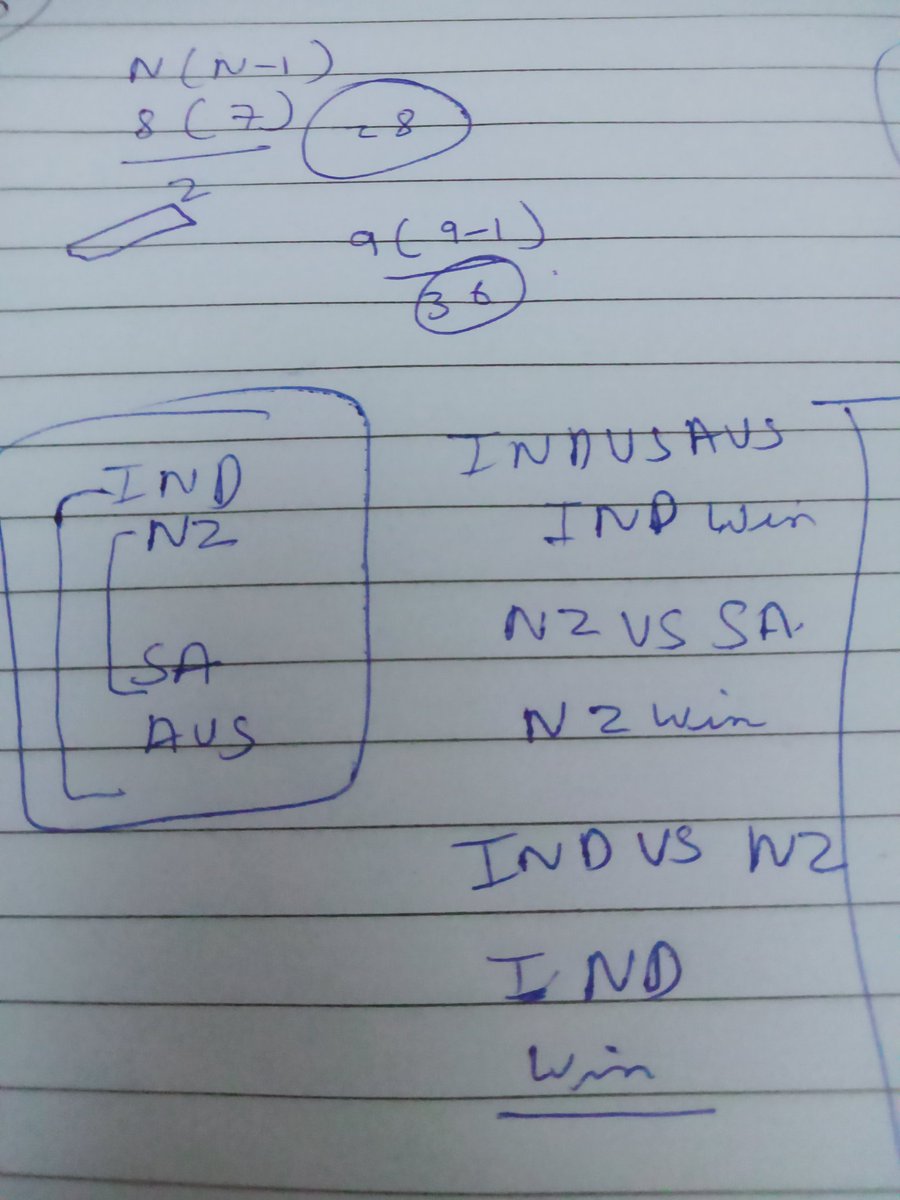 N(N-1)
8(7) 28
2
9(9-1)
36
IND
NZ
SA
AUS
IND VS AUS
IND Win
NZ VS SA.
NZ Win
IND VS NZ
IND
Win